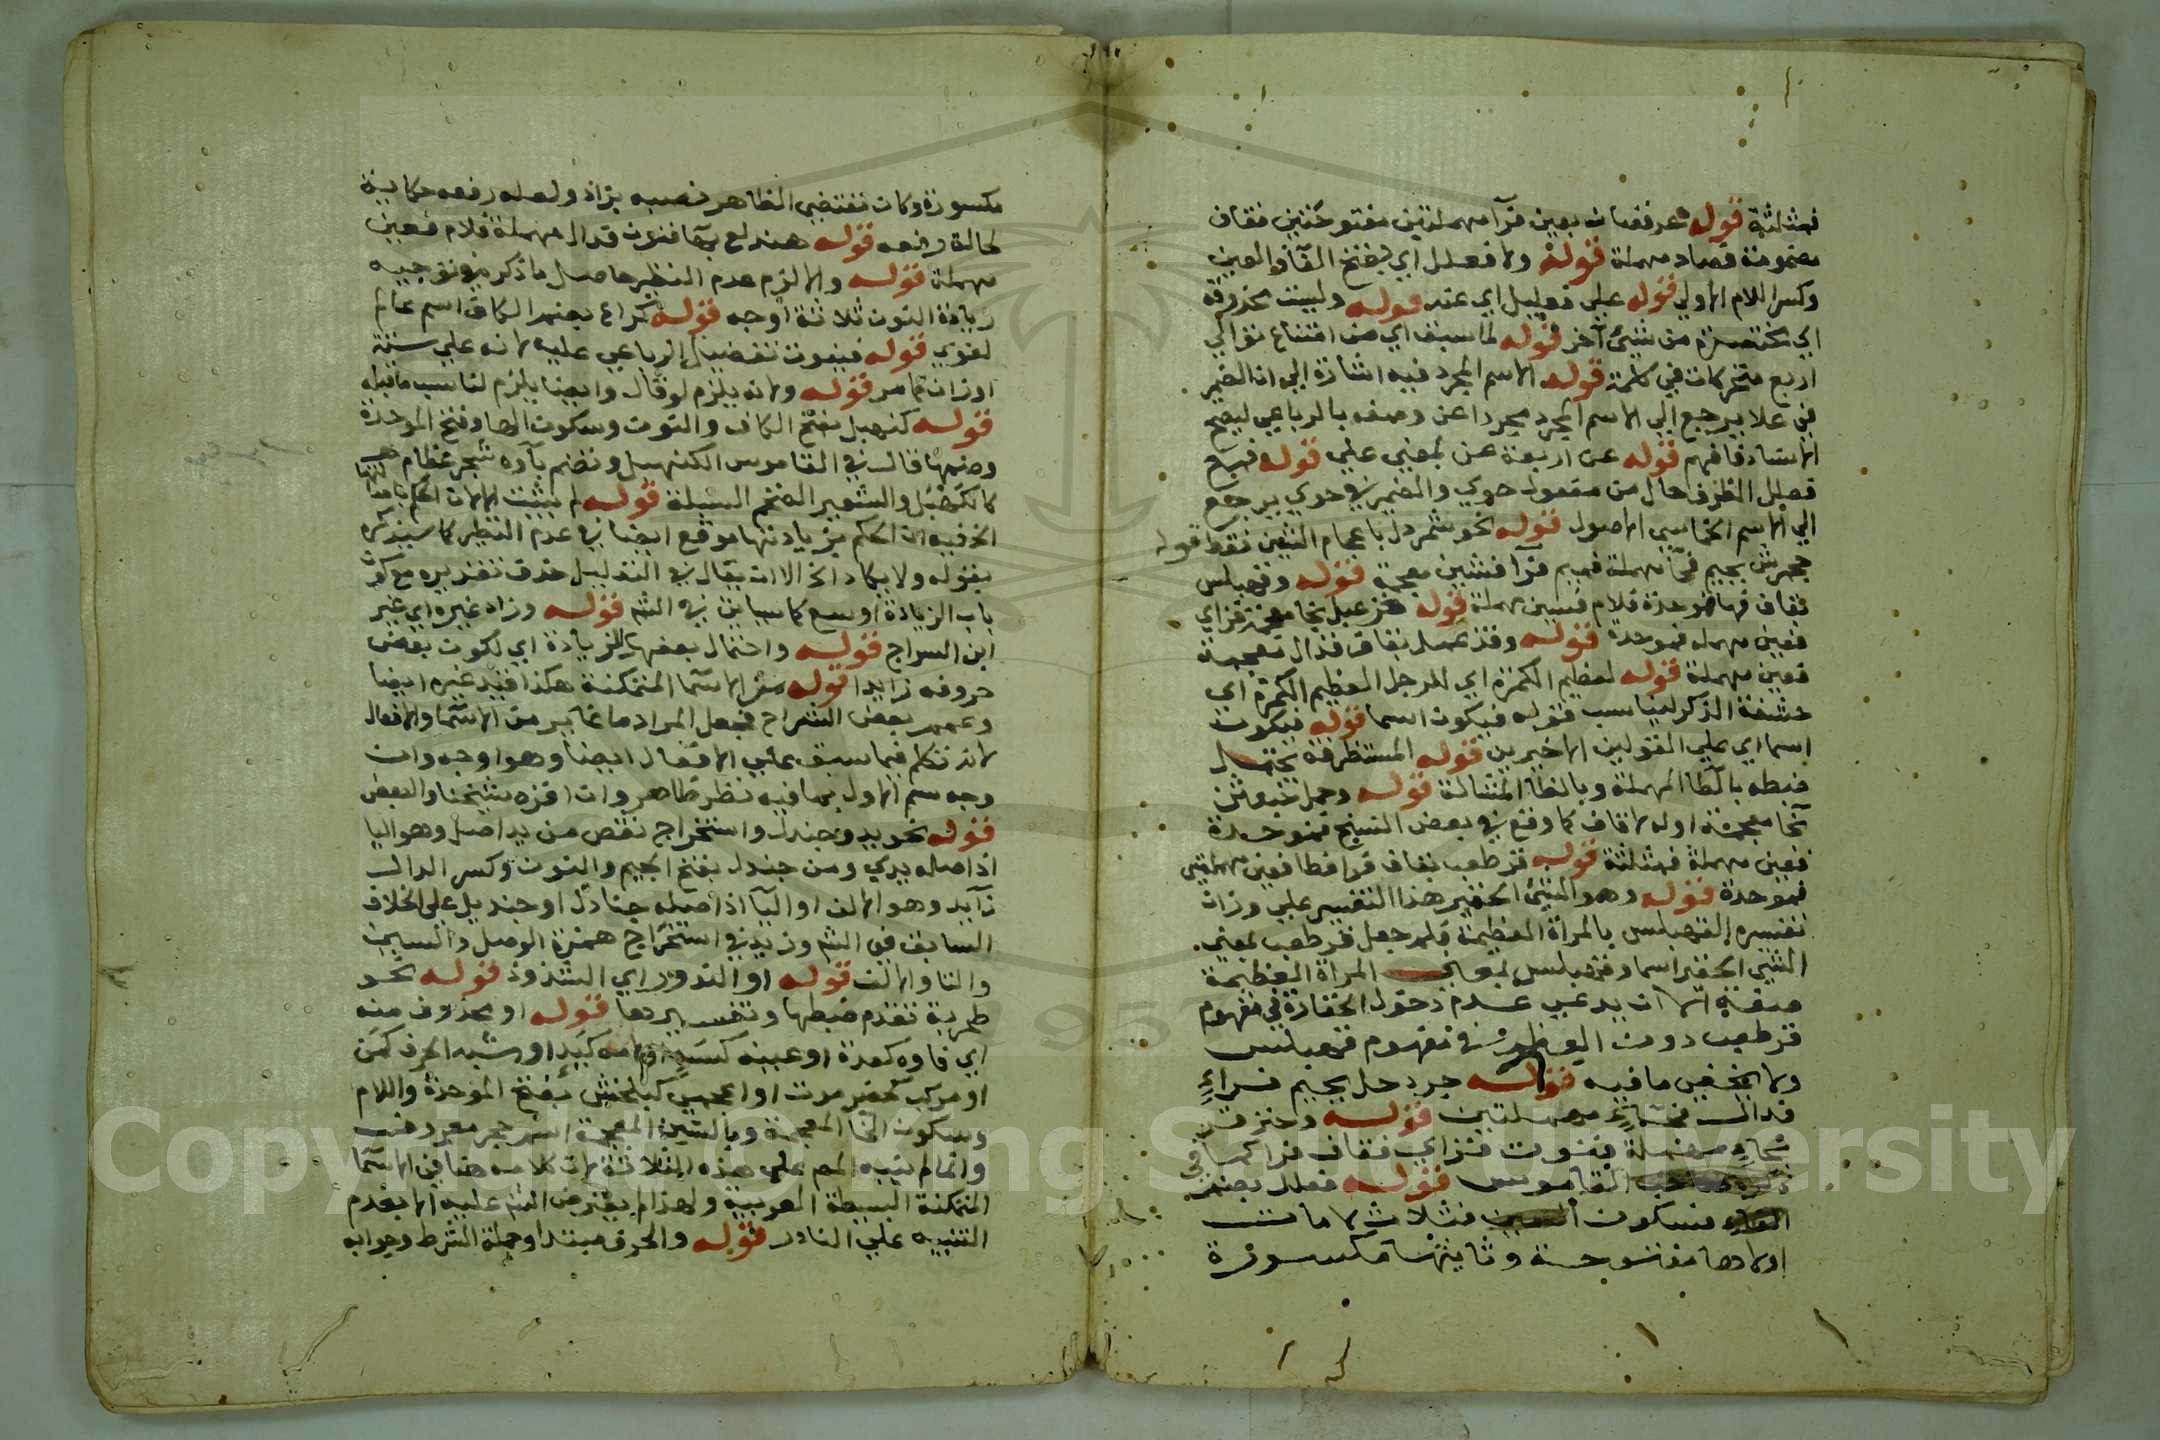 فمثلثة قوله عرقصان بعين فرآ مهملتين مفتوحتين فقاف
مضمومة فصاد مهملة قوله ولا فعلل اي بفتح الفآ والعين
وكسر اللام الاولي قوله علي فعليل اي عنه قوله وليست محذوفة
اي مختصرة من شيئ آخر قوله لما سبق اي من امتناع توالي
اربع متحركات في كلمة قوله الاسم المجرد فيه اشارة الي ان الضمير
في علا يرجع الي الاسم المجرد مجردا عن وصفه بالرباعي ليصح
الاسناد فافهم قوله عن اربعة عن بمعني علي قوله فمع
فعلل الظرف حال من مفعول حوي والضمير في حوي يرجع
الي الاسم الخماسي الاصول قوله نحو شمردل باعجام الشين فقط قوله
جحمرش بجيم فحآ مهملة فميم فرآ فشين معجمة قوله وقهبلس
بقاف فهآ فموحدة فلام فسين مهملة قوله خزعبل بخا معجمة فزاي
فعين مهملة فموحدة قوله وقذعمل بقاف فذال معجمة
فعين مهملة قوله لعظيم الكمرة اي للرجل العظيم الكمرة اي
حشفة الذكر ليناسب قوله فيكون اسما قوله فيكون
اسما اي علي القولين الاخيرين قوله المستظرفة يحتمل
ضبطه بالطآ المهملة وبالظآ المشالة قوله وجمل خبعثن
بخآ معجمة اوله لا قاف كما وقع في بعض النسخ فموحدة
فعين مهملة فمثلثة قوله قرطعب بقاف فرا فطا فعين مهملتين
فموحدة قوله وهو الشيئ الحقير هذا التفسير علي وزان
تفسيره القهبلس بالمرأة العظيمة فلم جعل قرطعب بمعني
الشيئ الحقير اسما وقهبلس بمعني المرأة العظيمة
صفة الا ان يدعي عدم دخول الحقارة في مفهوم
قرطعب دون العظم في مفهوم قهبلس
ولا يخفي ما فيه قوله جردحل بجيم فراءٍ
فدال فحآءٍ مهملتين قوله وحنزقر
بحاءٍ مهملة فنون فزاي فقاف فرا كما في
القاموس قوله فعلل بضم
الفاء فسكون العين فثلاث لامات
اولاها مفتوحة وثانيتها مكسورة
مكسورة وكان مقتضي الظاهر نصبه بزاد ولعله رفعه حكاية
لحالة رفعه قوله هندلع بهآ فنون فدال مهملة فلام فعين
مهملة قوله والا لزم عدم النظير حاصل ما ذكره في توجيه
زيادة النون ثلاثة اوجه قوله كراع بضم الكاف اسم عالم
لغوي قوله فيفوت تفضيل الرباعي عليه لانه علي ستة
اوزان كما مر قوله ولانه يلزم لو قال وايضا يلزم لناسب ما قبله
قوله كنهبل بفتح الكاف والنون وسكون الها وفتح الموحدة
وضمها قال في القاموس الكنهبل وتضم بآوه شجر عظام
كالكهبل والشعير الضخم السنبلة قوله لم يثبت الا ان الحكم باصا لتها
الخ فيه ان الحكم بزيادتها موقع ايضا في عدم النظير كما سيذكره
بقوله ولا يكاد الخ الا ان يقال في التعليل حذف تقديره مع كون
باب الزيادة اوسع كما سيأتي في الشم قوله وزاد غيره اي غير
ابن السراج قوله واحتمال بعضها للزيادة اي لكون بعض
حروفه زايدا قوله من الاسما المتمكنة هكذا قيد غيره ايضا
وعمم بعض الشراح فجعل المراد ما غاير من الاسما والافعال
لانه تكلم فيما سبق علي الافعال ايضا وهو اوجه وان
وجه سم الاول بما فيه نظر ظاهر وان اقره شيخنا والبعض
قوله نحو يد وجندل واستخراج نقص من يد اصل وهو اليا
اذ اصله يدي ومن جندل بفتح الجيم والنون وكسر الدال
زآيد وهو الالف او اليآ اذ اصله جنادل او جنديل علي الخلاف
السابق في الشم وزيد في استخراج همزة الوصل والسين
والتا والالف قوله او الندور اي الشذوذ قوله نحو
طحربة تقدم ضبطها وتفسيرها قوله او محذوف منه
اي فاوه كعدة او عينه كسه او لامه كيد او شبه الحرف كمن
او مركب كحضرموت او اعجمي كبلخش بفتح الموحدة واللام
وسكون الخآ المعجمة وبالشين المعجمة اسم حجر معروف
وانما لم ينبه المص علي هذه الثلاثة لان كلامه هنا في الاسما
المتمكنة البسيطة العربية ولهذا لم يعترض الشم عليه الا بعدم
التنبيه علي النادر قوله والحرف مبتدا وجملة الشرط وجوابه